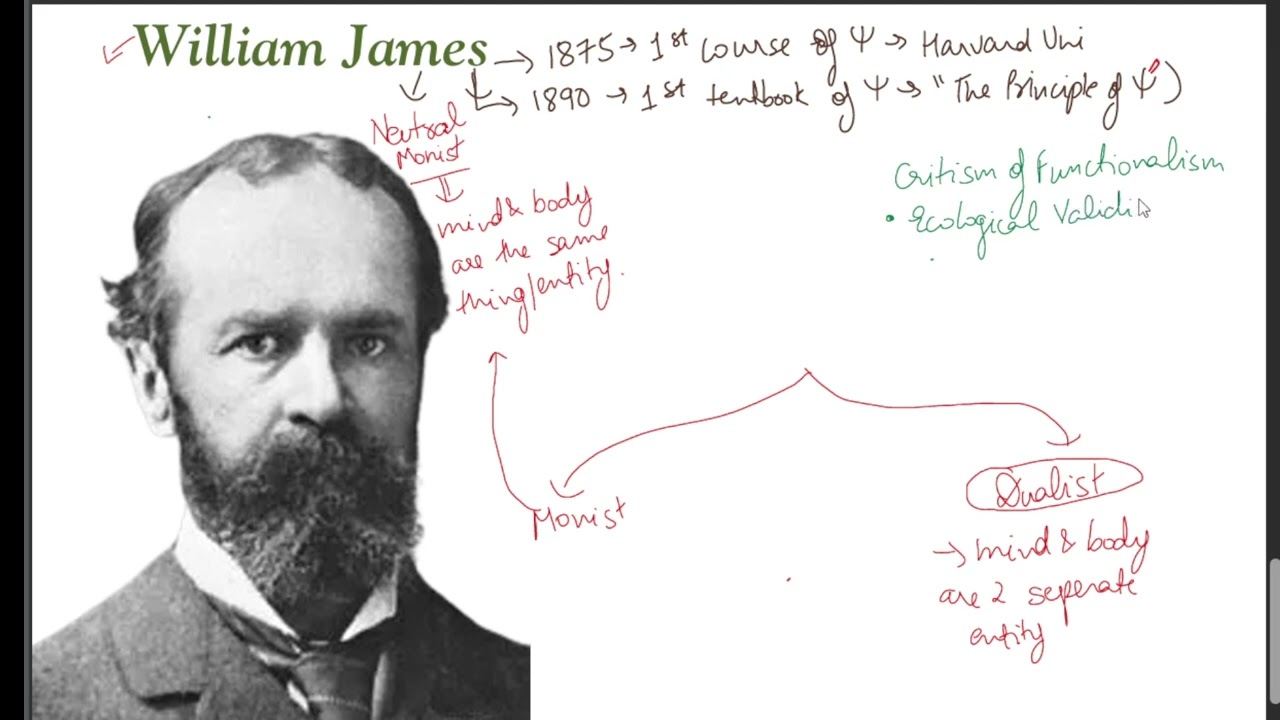 William James → 1875 → 1st course of Ψ → Harvard Uni
→ 1890 → 1st textbook of Ψ → "The Principle of Ψ")
Neutral
Monist
mind & body
are the same
thing/entity.
Critism of Functionalism
• Ecological Validi
Monist
Dualist
→ mind & body
are 2 seperate
entity